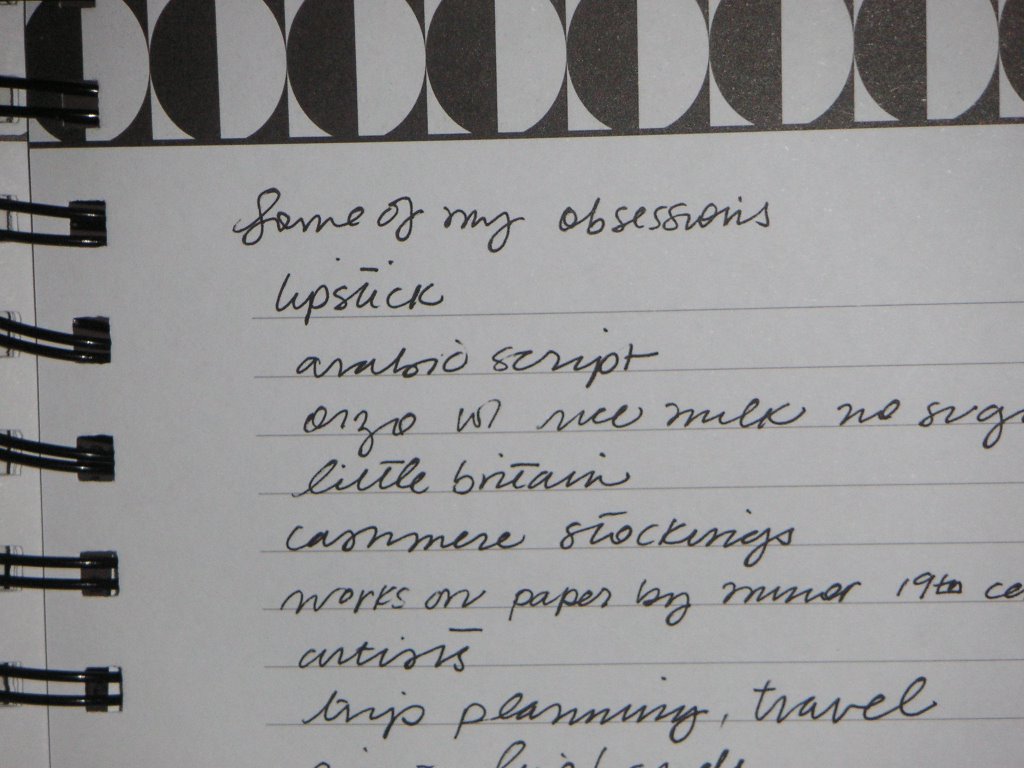 Some of my obsessions
lipstick
arabic script
orzo w/ rice milk no sug
little britain
cashmere stockings
works on paper by minor 19th ce
artists
trip planning, travel